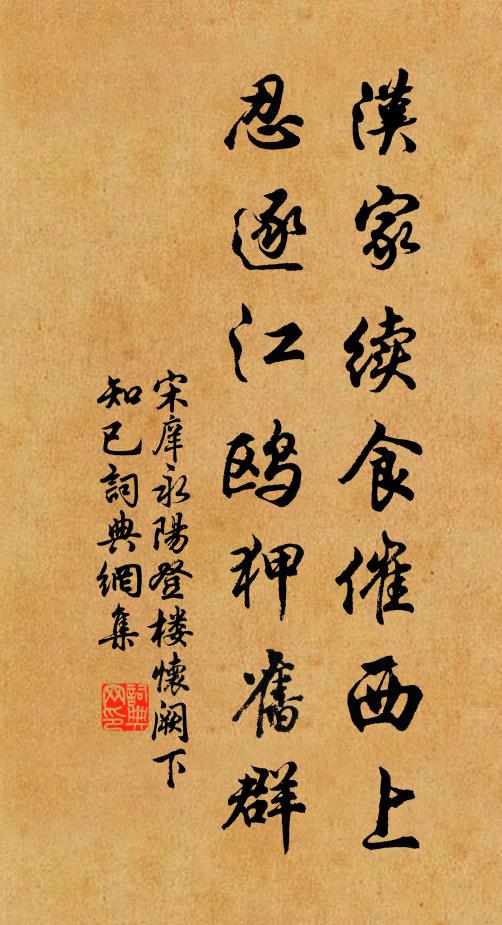 漢家續食催西上
忍逐江鸥狎舊群
宋庠永陽登楼懷阙下
知已詞典網集
詞典
网印